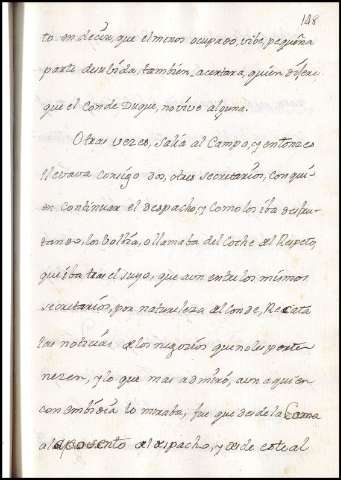 148
to en decir, que el menos ocupado, vibe, pequeña
parte de su bida, tambien, acertara, quien dijere
que el Conde Duque, no vive alguna.
Otras vezes, salia al Campo, y entonzes
llevava consigo dos, o tres secretarios, con qui
en continuar el despacho, y como los iba desfru
tando, los bolbia, o llamaba del Coche del Respeto,
que iba tras el suyo, que aun entre los mismos
secretarios, por naturaleza del Conde, Recata
las noticias de los negozios que no les perte
nezen, y lo que mas admiró, aun a quien
con embidia lo miraba, fue que desde la Cama
al aposento del despacho, y desde este al